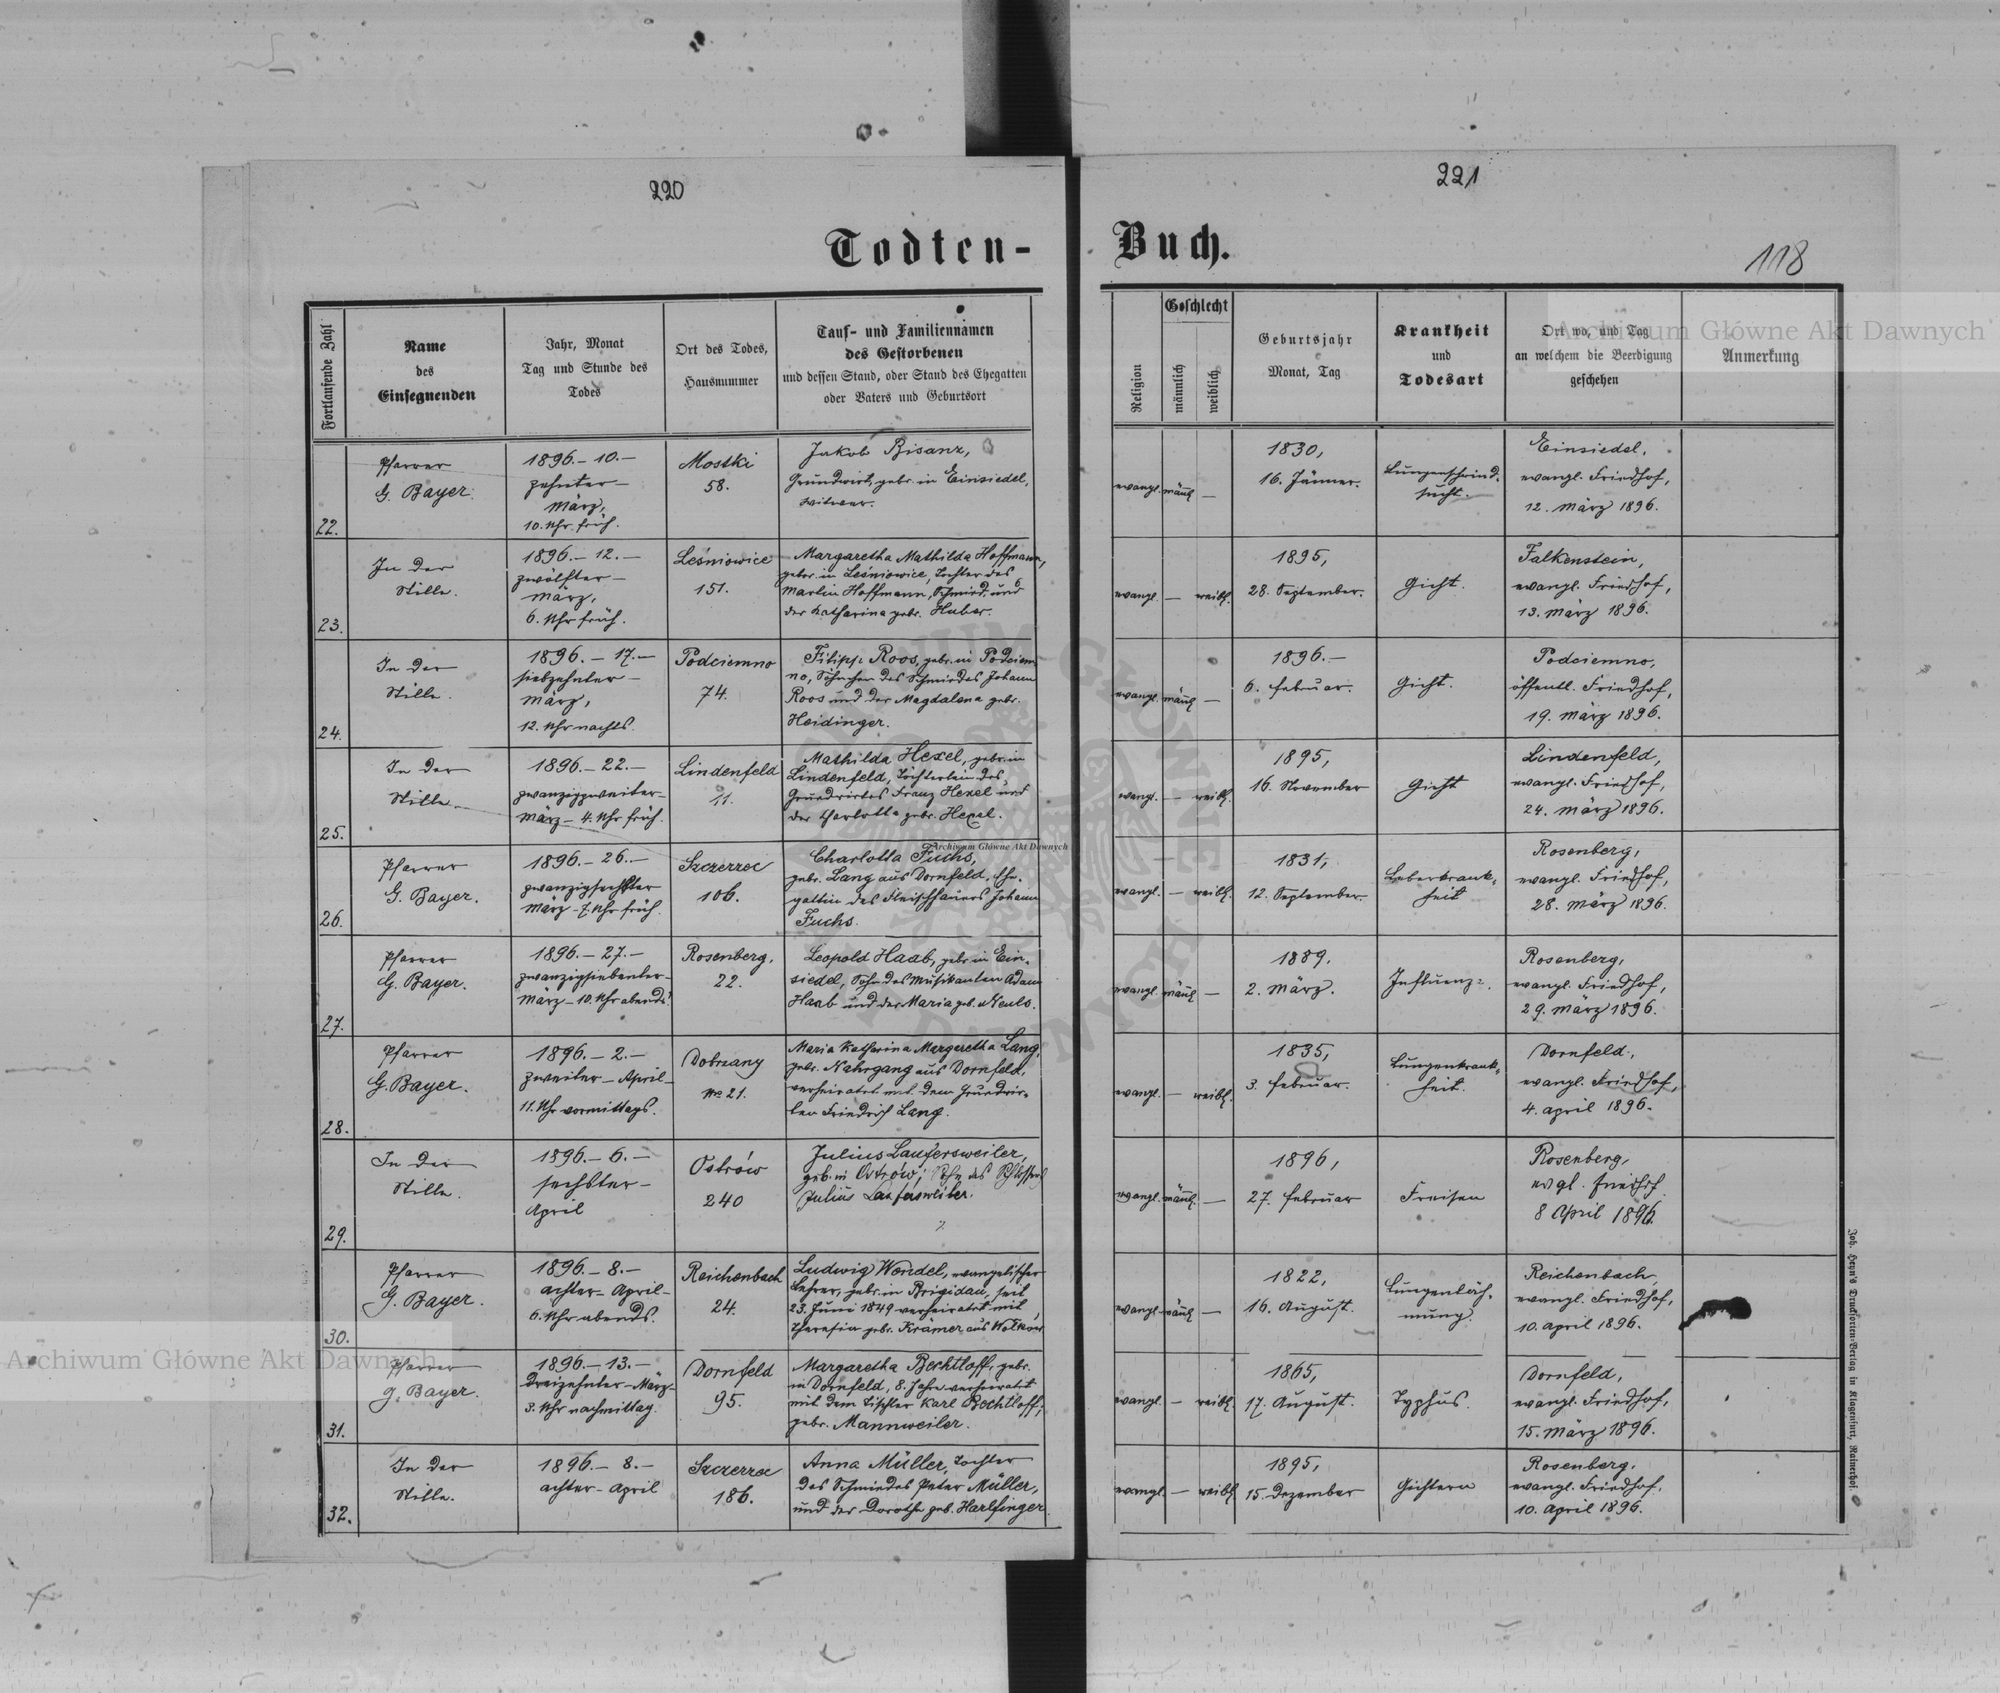 220
221
118
Todten-
Buch.
Fortlaufende Zahl
Name
des
Einsegnenden
Jahr, Monat
Tag und Stunde des
Todes
Ort des Todes,
Hausnummer
Tauf- und Familiennamen
des Gestorbenen
und dessen Stand, oder Stand des Ehegatten
oder Vaters und Geburtsort
Religion
Geschlecht
männlich
weiblich
Geburtsjahr
Monat, Tag
Krankheit
und
Todesart
Ort wo, und Tag
an welchem die Beerdigung
geschehen
Anmerkung
22.
Pfarrer
G. Bayer.
1896.- 10.-
zehnter-
März,
10. Uhr früh.
Mostki
58.
Jakob Bisanz,
Grundwirt, gebr. in Einsiedel,
Witwer.
evangl. männl. —
1830,
16. Jänner.
Lungenschwind-
sucht.
Einsiedel,
evangl. Friedhof,
12. März 1896.
23.
In der
Stille.
1896.- 12.-
zwölfter-
März,
6. Uhr früh.
Leśniowice
151.
Margaretha Mathilda Hoffmann,
gebr. in Leśniowice, Tochter des
Martin Hoffmann, Schmied, und
der Katharina gebr. Huber.
evangl. — weibl.
1895,
28. September.
Gicht.
Falkenstein,
evangl. Friedhof,
13. März 1896.
24.
In der
Stille.
1896.- 17.-
siebzehnter-
März,
12. Uhr nachts.
Podciemno
74.
Filipp Roos, gebr. in Podciem-
no, Söhnchen des Schmiedes Johann
Roos und der Magdalena gebr.
Heidinger.
evangl. männl. —
1896.-
6. Februar.
Gicht.
Podciemno,
öffentl. Friedhof,
19. März 1896.
25.
In der
Stille.
1896.- 22.-
zwanzigzweiter-
März- 4. Uhr früh.
Lindenfeld
11.
Mathilda Hexel, gebr. in
Lindenfeld, Töchterlein des
Grundwirtes Franz Hexel und
der Charlotte gebr. Hexel.
evangl. — weibl.
1895,
16. November
Gicht
Lindenfeld,
evangl. Friedhof,
24. März 1896.
26.
Pfarrer
G. Bayer.
1896.- 26.-
zwanzigsechster
März- 7. Uhr früh.
Szczerzec
106.
Charlotta Fuchs,
gebr. Lang aus Dornfeld, Ehe-
gattin des Fleischhauers Johann
Fuchs.
evangl. — weibl.
1831,
12. September.
Leberkrank-
heit
Rosenberg,
evangl. Friedhof,
28. März 1896.
27.
Pfarrer
G. Bayer.
1896.- 27.-
zwanzigsiebenter-
März- 10. Uhr abends.
Rosenberg,
22.
Leopold Haab, gebr. in Ein-
siedel, Sohn des Musikanten Adam
Haab und der Maria geb.
evangl. männl. —
1889.
2. März.
Influenz
Rosenberg,
evangl. Friedhof,
29. März 1896.
28.
Pfarrer
G. Bayer.
1896.- 2.-
zweiter- April-
11. Uhr vormittags.
Dobrzany
No 21.
Maria Katharina Margaretha Lang,
gebr. Nahrgang aus Dornfeld,
verheiratet mit dem Grundwir-
ten Friedrich Lang.
evangl. — weibl.
1835,
3. Februar.
Lungenkrank-
heit.
Dornfeld,
evangl. Friedhof,
4. April 1896.
29.
In der
Stille.
1896.- 6.-
sechster-
April
Ostrów
240
Julius Laufersweiler,
geb. in Ostrów, Sohn des Schlossers
Julius Laufersweiler.
evangl. männl. —
1896,
27. Februar
Freisen
Rosenberg,
evgl. Friedhof
8 April 1896.
30.
Pfarrer
G. Bayer.
1896.- 8.-
achter- April-
6. Uhr abends.
Reichenbach
24.
Ludwig Wendel, evangelischer
Lehrer, gebr. in Brigidau, seit
23. Juni 1849 verheiratet mit
Theresia gebr. Krämer aus Wolków
evangl. männl. —
1822,
16. August.
Lungenläh-
mung.
Reichenbach,
evangl. Friedhof,
10. April 1896.
31.
Pfarrer
G. Bayer.
1896.- 13.-
Dreizehnter- März-
3. Uhr nachmittag.
Dornfeld
95.
Margaretha Bechtloff, gebr.
in Dornfeld, 8. Jahre verheiratet
mit dem Tischler Karl Bechtloff,
gebr. Mannweiler.
evangl. — weibl.
1865,
17. August.
Typhus.
Dornfeld,
evangl. Friedhof,
15. März 1896.
32.
In der
Stille.
1896.- 8.-
achter- April
Szczerzec
186.
Anna Müller, Tochter
des Schmiedes Peter Müller,
und der Dorothe geb. Harlfinger.
evangl. — weibl.
1895,
15. Dezember
Gichtern
Rosenberg,
evangl. Friedhof,
10. April 1896.
Joh. Heyn's Drucksorten-Verlag in Klagenfurt, Rainerhof.
Archiwum Główne Akt Dawnych
Archiwum Główne Akt Dawnych
Archiwum Główne Akt Dawnych